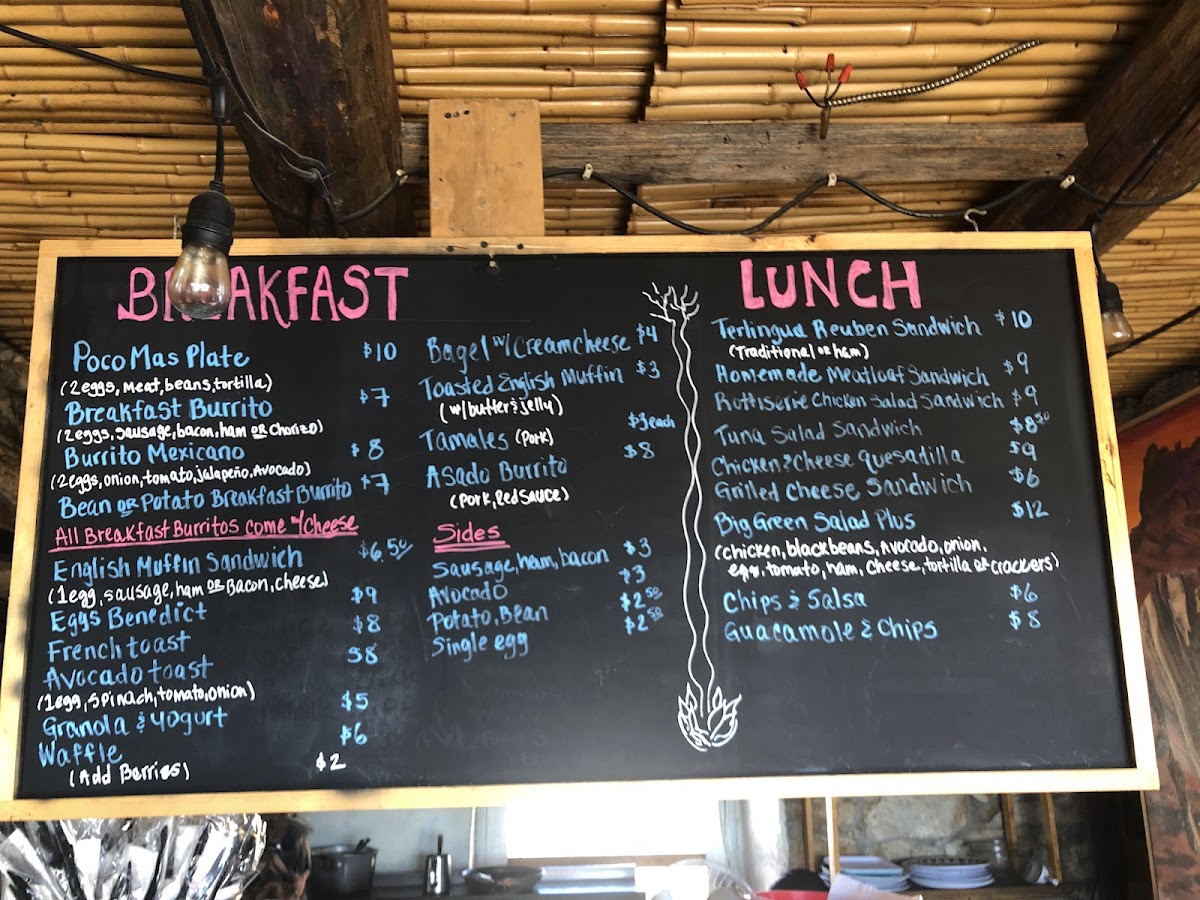 BREAKFAST
Poco Mas Plate $10
(2eggs, Meat, beans, tortilla)
Breakfast Burrito $7
(2eggs, sausage, bacon, ham or Chorizo)
Burrito Mexicano $8
(2eggs, onion, tomato, jalapeño, Avocado)
Bean or Potato Breakfast Burrito $7
All Breakfast Burritos come w/cheese
English Muffin Sandwich $6.50
(1egg, sausage, ham or Bacon, cheese)
Eggs Benedict $9
French toast $8
Avocado toast $8
(1egg, spinach, tomato, onion)
Granola & yogurt $5
Waffle $6
(Add Berries) $2
Bagel w/ Creamcheese $4
Toasted English Muffin $3
(w/butter & jelly)
Tamales (Pork) $3 each
Asado Burrito $8
(Pork, Red Sauce)
Sides
Sausage, ham, bacon $3
Avocado $3
Potato, Bean $2.50
Single egg $2.50
LUNCH
Terlingua Reuben Sandwich $10
(Traditional or ham)
Homemade Meatloaf Sandwich $9
Rottiserie Chicken Salad Sandwich $9
Tuna Salad Sandwich $8.50
Chicken & Cheese quesadilla $9
Grilled Cheese Sandwich $6
Big Green Salad Plus $12
(chicken, blackbeans, Avocado, onion,
egg, tomato, ham, cheese, tortilla or crackers)
Chips & Salsa $6
Guacamole & Chips $8